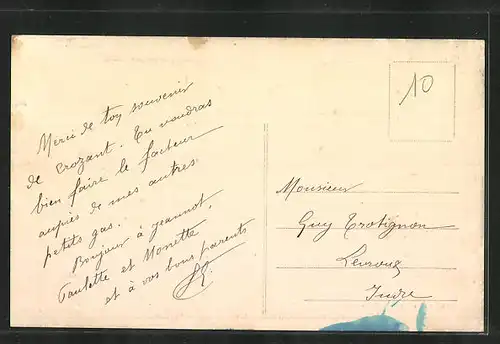 Merci de ton souvenir
de Crozant. Tu voudras
bien faire le facteur
auprès de mes autres
petits gas.
Bonjour à Jeannot,
Paulette et Monette
et à vos bons parents
10
Monsieur
Guy Trotignon
Levroux
Indre